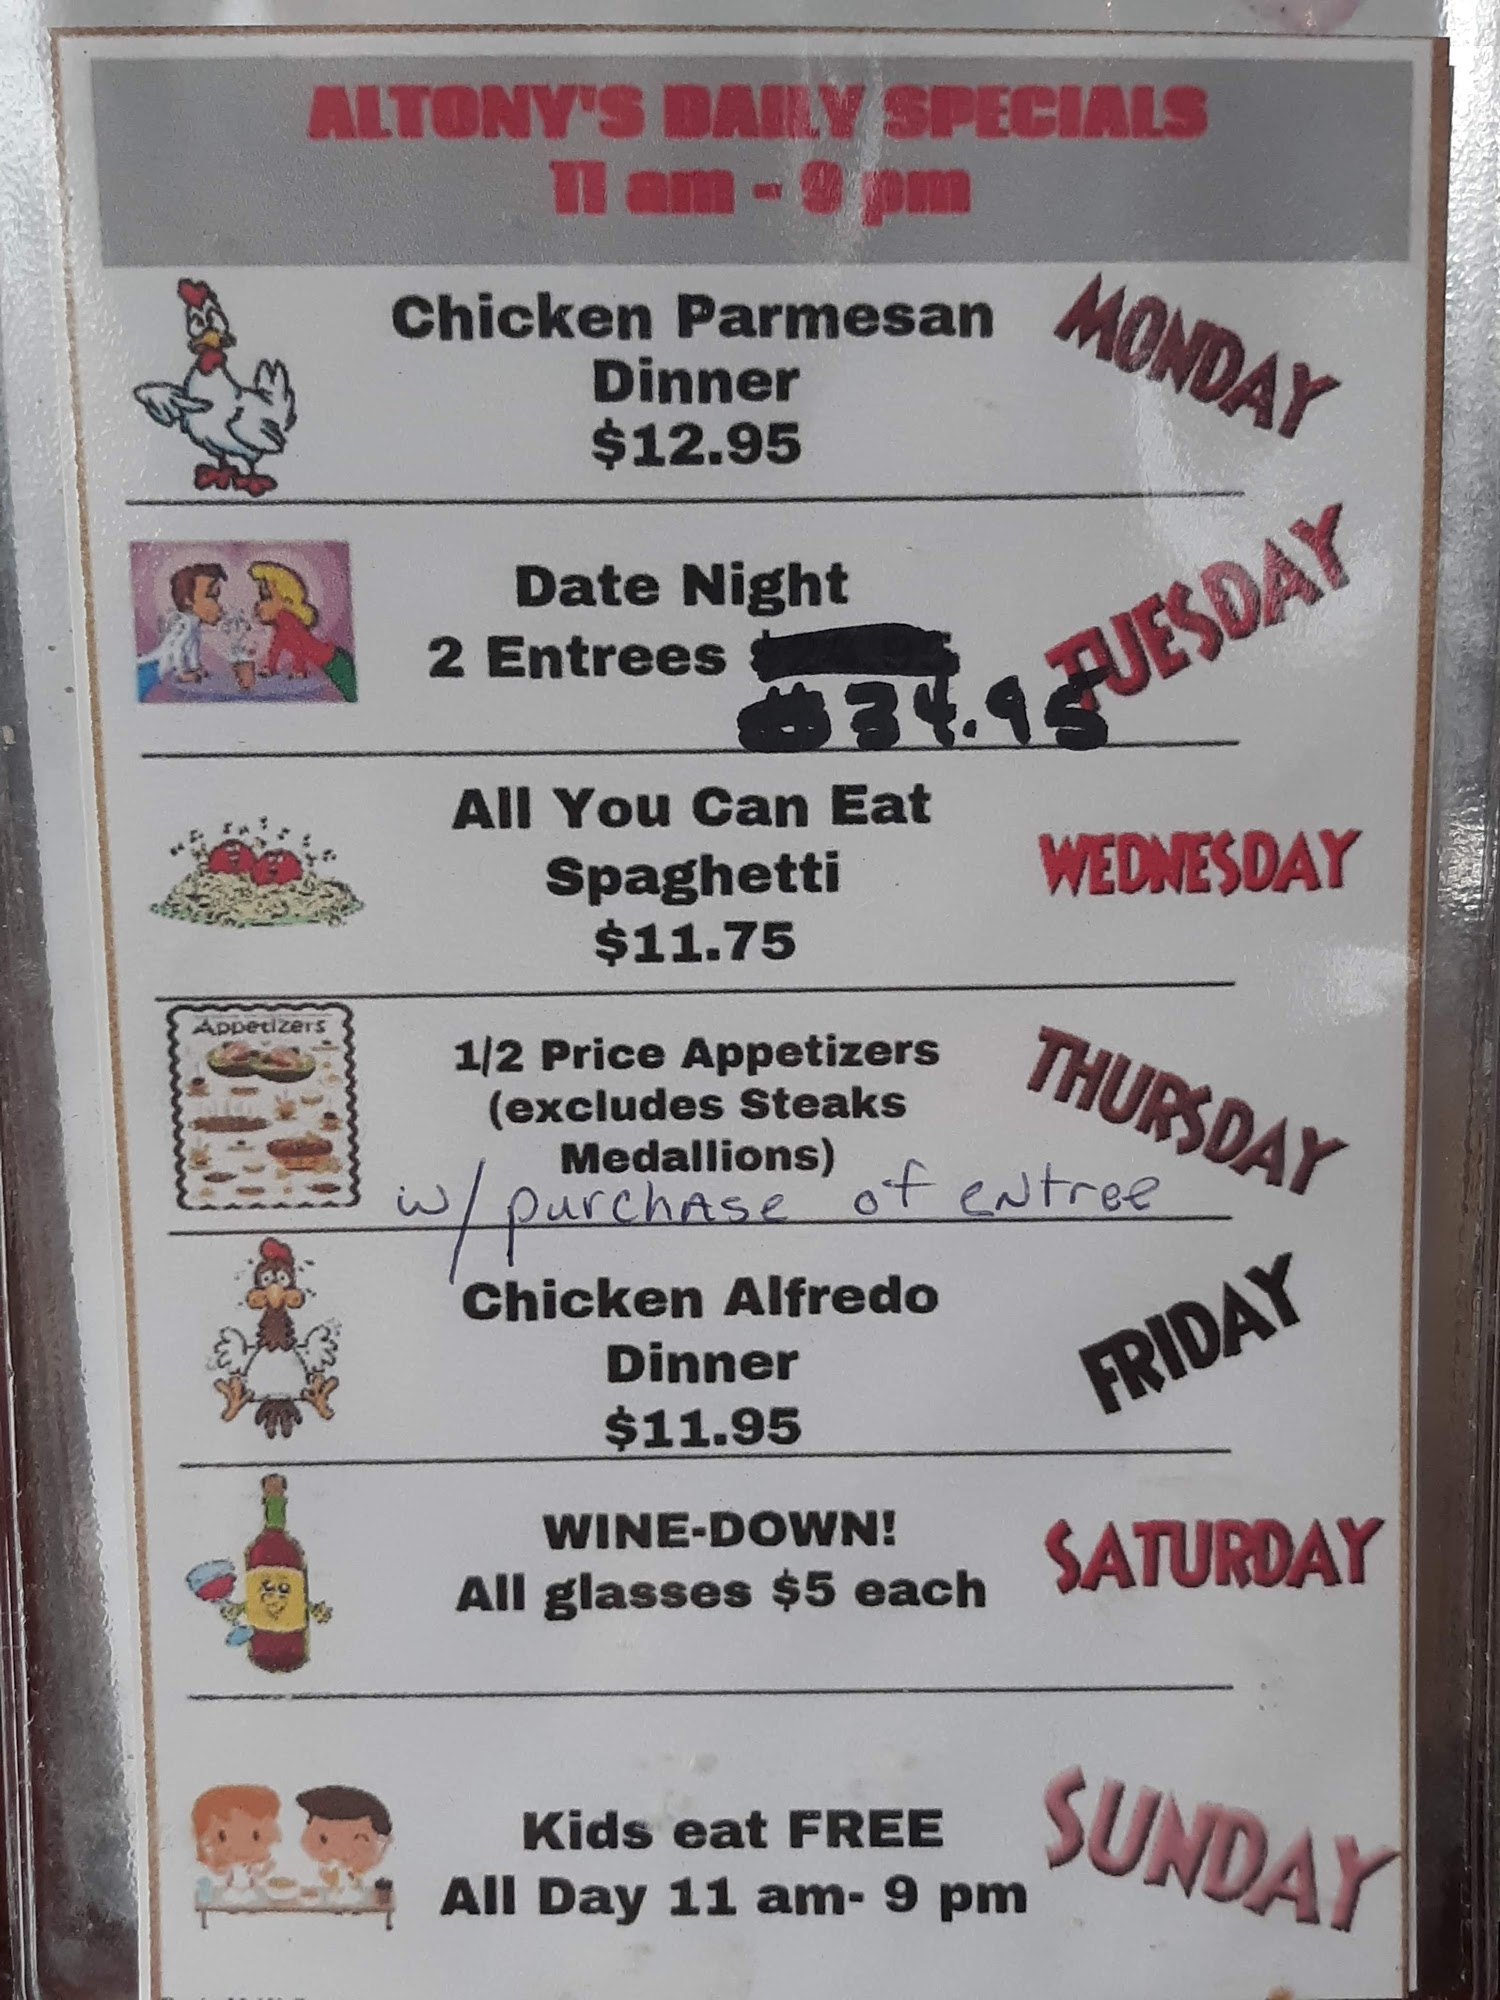 ALTONY'S DAILY SPECIALS
11 am - 9 pm
Chicken Parmesan
Dinner
$12.95
MONDAY
Date Night
2 Entrees
$34.95
TUESDAY
All You Can Eat
Spaghetti
$11.75
WEDNESDAY
Appetizers
1/2 Price Appetizers
(excludes Steaks
Medallions)
w/ purchase of entree
THURSDAY
Chicken Alfredo
Dinner
$11.95
FRIDAY
WINE-DOWN!
All glasses $5 each
SATURDAY
Kids eat FREE
All Day 11 am- 9 pm
SUNDAY